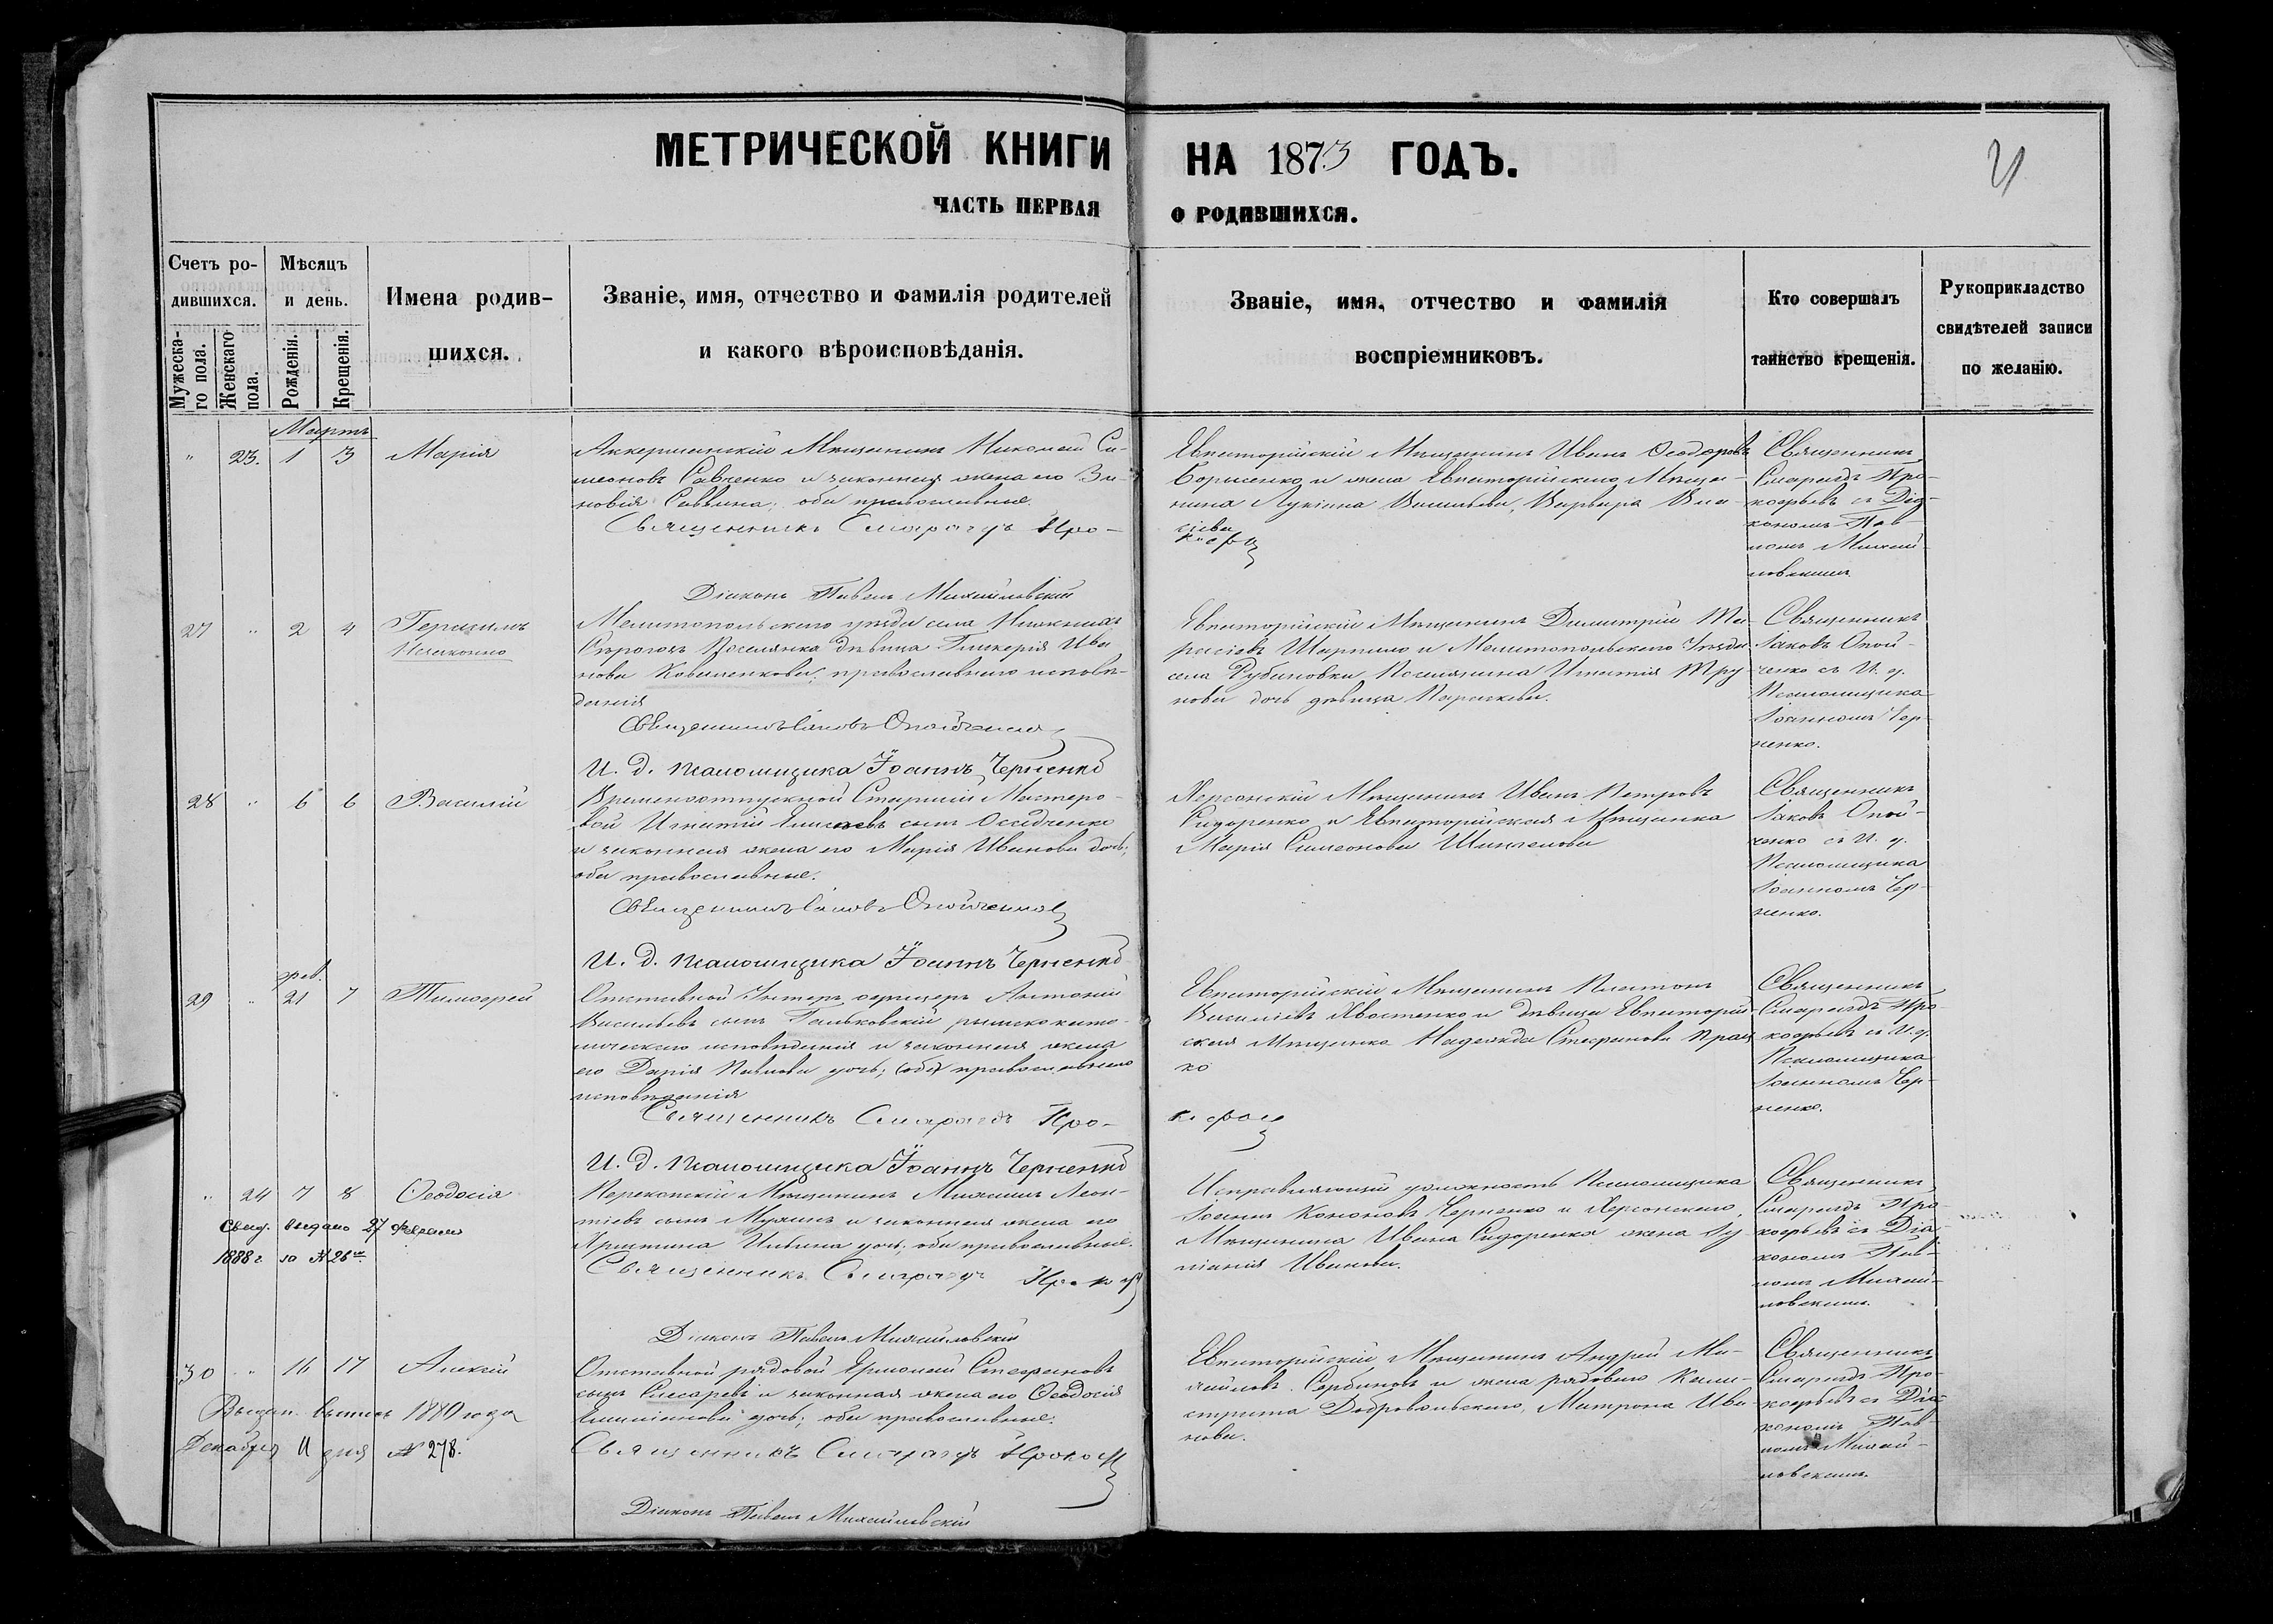 МЕТРИЧЕСКОЙ КНИГИ НА 1873 ГОДЪ.
21
ЧАСТЬ ПЕРВАЯ О РОДИВШИХСЯ.
Счетъ ро-
дившихся.
Мужеска-
го пола.
Женскаго
пола.
Мѣсяцъ
и день.
Рожденія.
Крещенія.
Имена родив-
шихся.
Званіе, имя, отчество и фамилія родителей
и какого вѣроисповѣданія.
Званіе, имя, отчество и фамилія
воспріемниковъ.
Кто совершалъ
таинство крещенія.
Рукоприкладство
свидѣтелей записи
по желанію.
Мартъ
" 23. 1 3 Марія
Аккерманскій Мѣщанинъ Николай Си-
меоновъ Савченко и законная жена его Зи-
новія Саввина; оба православные.
Священникъ Смарагдъ Про-
Діаконъ Павелъ Михайловскій
Евпаторійскій Мѣщанинъ Иванъ Ѳеодоровъ
Борисенко и жена Евпаторійскаго Мѣща-
нина Лукіана Васильева, Варвара Вла-
сіева
кофьев
Священникъ
Смарагдъ Про-
кофьевъ съ Діа-
кономъ Пав-
ломъ Михай-
ловскимъ.
27 " 2 4 Герасимъ
Незаконно
Мелитопольскаго уѣзда села Нижнихъ
Сѣрогозъ Поселянка дѣвица Гликерія Ива-
нова Коваленкова; православнаго исповѣ-
данія
Священникъ Іаковъ Опойченко
И. д. псаломщика Іоаннъ Черненко
Евпаторійскій Мѣщанинъ Димитрій Та-
расіевъ Шарпило и Мелитопольскаго Уѣзда
села Рубановки Поселянина Игнатія Тру-
нова дочь дѣвица Параскева.
Священникъ
Іаковъ Опой-
ченко съ И. д.
Псаломщика
Іоанномъ Чер-
ненко.
28 " 6 6 Василій
Временноотпускной Старшій Мастеро-
вой Игнатій Елисеевъ сынъ Осадченко
и законная жена его Марія Иванова дочь;
оба православные.
Священникъ Іаковъ Опойченко
И. д. псаломщика Іоаннъ Черненко
Херсонскій Мѣщанинъ Иванъ Петровъ
Сидоренко и Евпаторійская Мѣщанка
Марія Симеонова
Священникъ
Іаковъ Опой-
ченко съ И. д.
Псаломщика
Іоанномъ Чер-
ненко.
фев.
29 " 21 7 Тимоѳей
Отставной Унтеръ офицеръ Антоній
Васильевъ сынъ Гальковскій римскокато-
лическаго исповѣданія и законная жена
его Дарія Павлова дочь; (оба) православнаго
исповѣданія
Священникъ Смарагдъ Про-
И. д. псаломщика Іоаннъ Черненко
Евпаторійскій Мѣщанинъ Платонъ
Василіевъ Хвостенко и дѣвица Евпаторій-
ская Мѣщанка Надежда Стефанова
ко
кофьев
Священникъ
Смарагдъ Про-
кофьевъ съ И. д.
Псаломщика
Іоанномъ Чер-
ненко.
" 24 7 8 Ѳеодосія
Свид. выдано 27 Февраля
1888 г. за № 26м.
Перекопскій Мѣщанинъ Михаилъ Леон-
тіевъ сынъ Мухинъ и законная жена его
Христина Ильина дочь; оба православные.
Священникъ Смарагдъ Прокоф
Діаконъ Павелъ Михайловскій
Исправляющій должность Псаломщика
Іоаннъ Кононовъ Черненко и Херсонскаго
Мѣщанина Ивана Сидоренка жена Лу-
кіанія Иванова.
Священникъ
Смарагдъ Про-
кофьевъ съ Діа-
кономъ Пав-
ломъ Михай-
ловскимъ.
30 " 16 17 Алексій
Выдан. выпись 1880 года
Декабря 11 дня № 278.
Отставной рядовой Ермолай Стефановъ
сынъ Слесаревъ и законная жена его Ѳеодосія
Емиліанова дочь; оба православные.
Священникъ Смарагдъ Прокоф
Діаконъ Павелъ Михайловскій
Евпаторійскій Мѣщанинъ Андрей Ми-
хайловъ Сербиновъ и жена рядоваго Кали-
страта Добровольскаго, Матрона Ива-
нова.
Священникъ
Смарагдъ Про-
кофьевъ съ Діа-
кономъ Пав-
ломъ Михай-
ловскимъ.